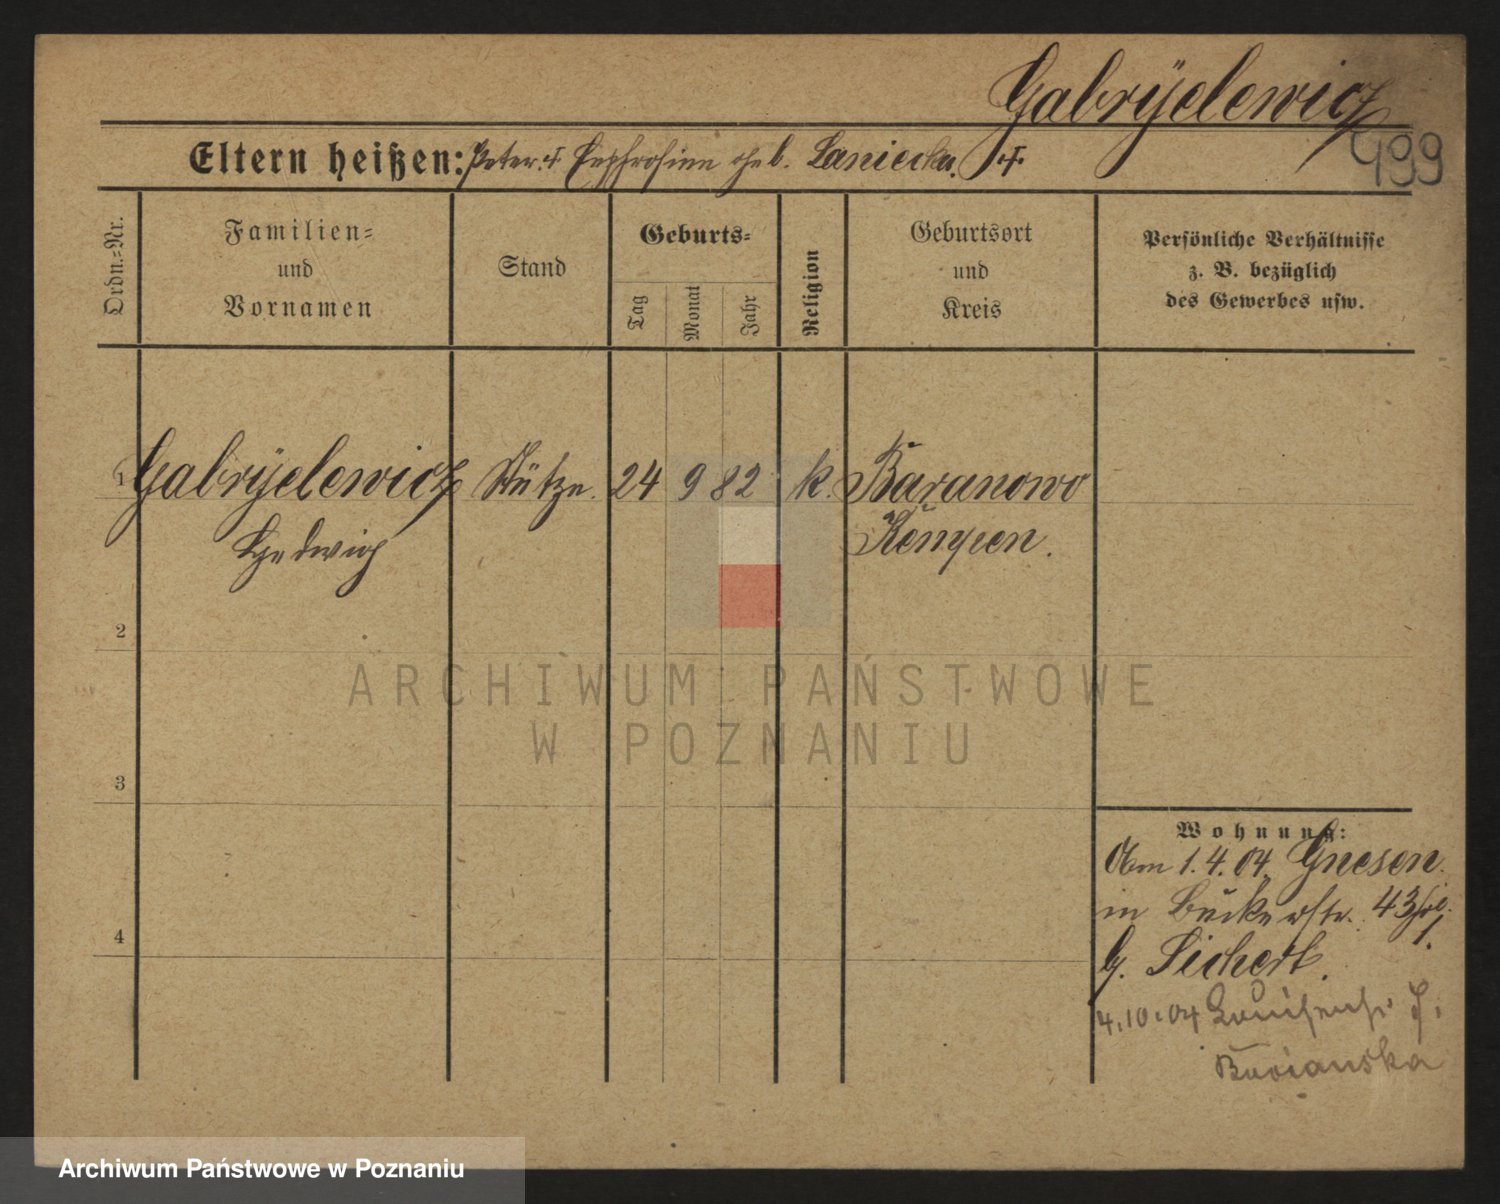 Gabryelewicz
499
Eltern heißen: Peter u. Euphrosine geb. Laniecka
Ordn.-Nr.
Familien-
und
Vornamen
Stand
Geburts-
Tag
Monat
Jahr
Religion
Geburtsort
und
Kreis
Persönliche Verhältnisse
z. B. bezüglich
des Gewerbes usw.
1 Gabryelewicz Stütze. 24 9 82 k. Baranowo
Hedwig Kempen.
2
3
4
Wohnung:
Am 1.4.04. Gnesen
in 43
b. Sichert.
4.10.04
ARCHIWUM PAŃSTWOWE
W POZNANIU
Archiwum Państwowe w Poznaniu